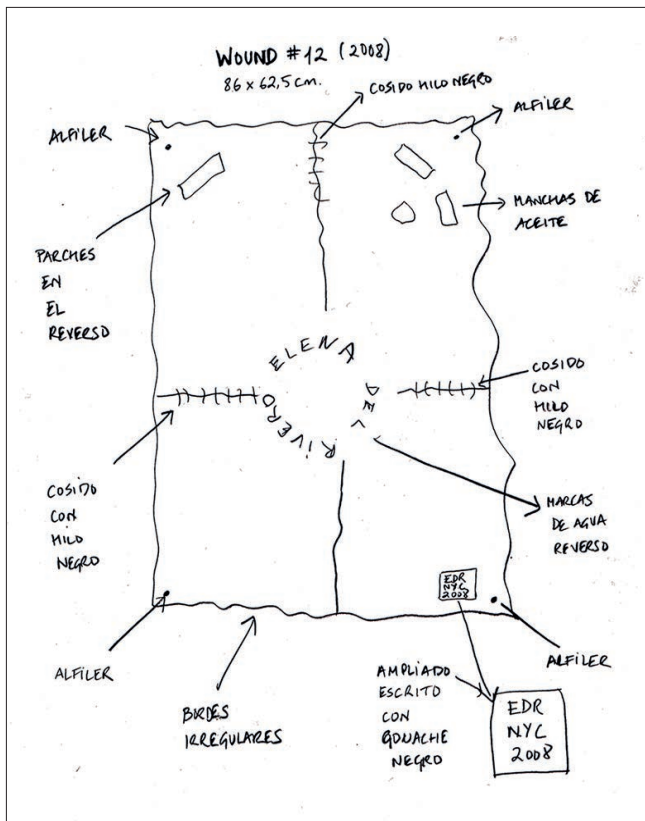 WOUND #12 (2008)
86 x 62,5 cm.
COSIDO HILO NEGRO
ALFILER
ALFILER
MANCHAS DE
ACEITE
PARCHES
EN
EL
REVERSO
ELENA
DEL
RIVERO
COSIDO
CON
HILO
NEGRO
COSIDO
CON
HILO
NEGRO
MARCAS
DE AGUA
REVERSO
EDR
NYC
2008
ALFILER
BIRDES
IRREGULARES
AMPLIADO
ESCRITO
CON
GONACHE
NEGRO
ALFILER
EDR
NYC
2008